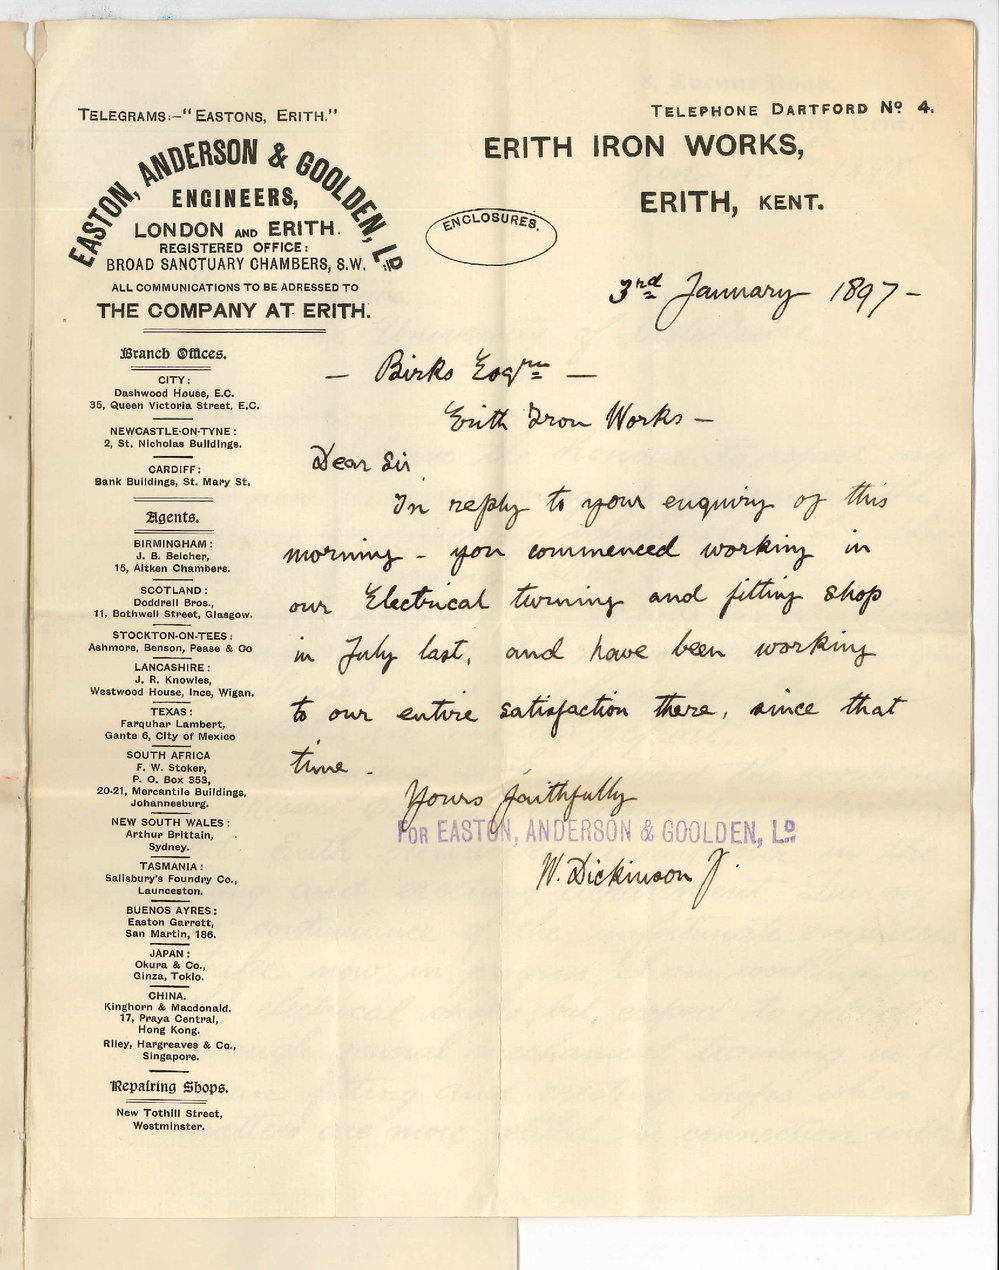 TELEGRAMS:—"EASTONS, ERITH."
TELEPHONE DARTFORD Nº 4.
EASTON, ANDERSON & GOOLDEN, LD
ENGINEERS,
LONDON AND ERITH.
REGISTERED OFFICE:
BROAD SANCTUARY CHAMBERS, S.W.
ALL COMMUNICATIONS TO BE ADRESSED TO
THE COMPANY AT ERITH.
ERITH IRON WORKS,
ERITH, KENT.
ENCLOSURES.
Branch Offices.
CITY:
Dashwood House, E.C.
35, Queen Victoria Street, E.C.
NEWCASTLE-ON-TYNE:
2, St. Nicholas Buildings.
CARDIFF:
Bank Buildings, St. Mary St.
Agents.
BIRMINGHAM:
J. B. Belcher,
15, Aitken Chambers.
SCOTLAND:
Doddrell Bros.,
11, Bothwell Street, Glasgow.
STOCKTON-ON-TEES:
Ashmore, Benson, Pease & Co
LANCASHIRE:
J. R. Knowles,
Westwood House, Ince, Wigan.
TEXAS:
Farquhar Lambert,
Gante 6, City of Mexico
SOUTH AFRICA
F. W. Stoker,
P. O. Box 353,
20-21, Mercantile Buildings,
Johannesburg.
NEW SOUTH WALES:
Arthur Brittain,
Sydney.
TASMANIA:
Salisbury's Foundry Co.,
Launceston.
BUENOS AYRES:
Easton Garrett,
San Martin, 186.
JAPAN:
Okura & Co.,
Ginza, Tokio.
CHINA.
Kinghorn & Macdonald.
17, Praya Central,
Hong Kong.
Riley, Hargreaves & Co.,
Singapore.
Repairing Shops.
New Tothill Street,
Westminster.
3rd January 1897-
— Birks Esqre —
Erith Iron Works —
Dear Sir
In reply to your enquiry of this
morning - you commenced working in
our Electrical turning and fitting shop
in July last, and have been working
to our entire satisfaction there, since that
time.
Yours faithfully
FOR EASTON, ANDERSON & GOOLDEN, LD
W. Dickinson J.